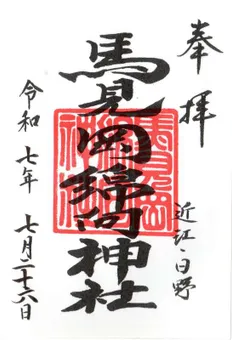 奉拝
近江・日野
馬見岡綿向神社
令和七年 七月二十六日